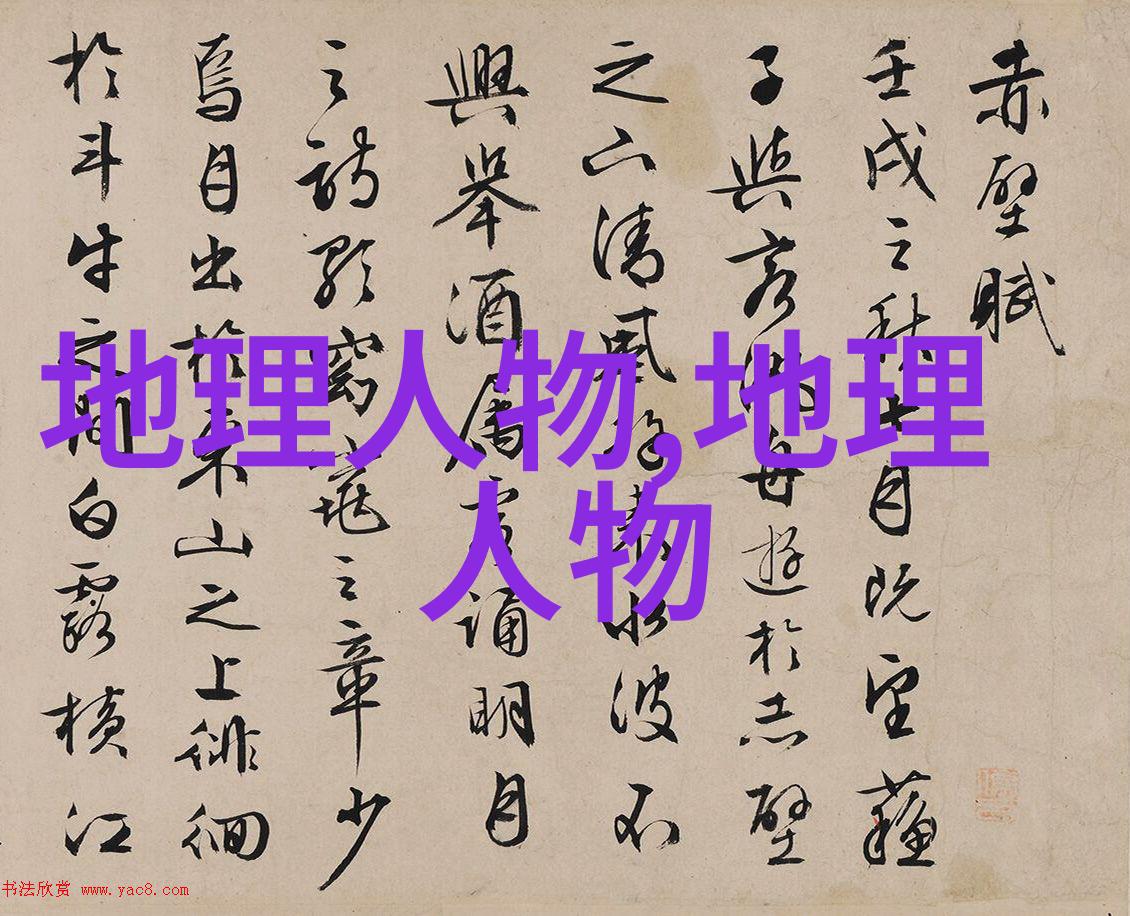 赤壁賦
壬戌之秋七月既望蘓
子與客泛舟遊於赤壁
之下清風徐來水波不
興舉酒屬客誦明月
之詩歌窈窕之章少
焉月出於東山之上徘徊
於斗牛之間白露橫江
地理人物,地理
人物
书法欣赏 www.yac8.com